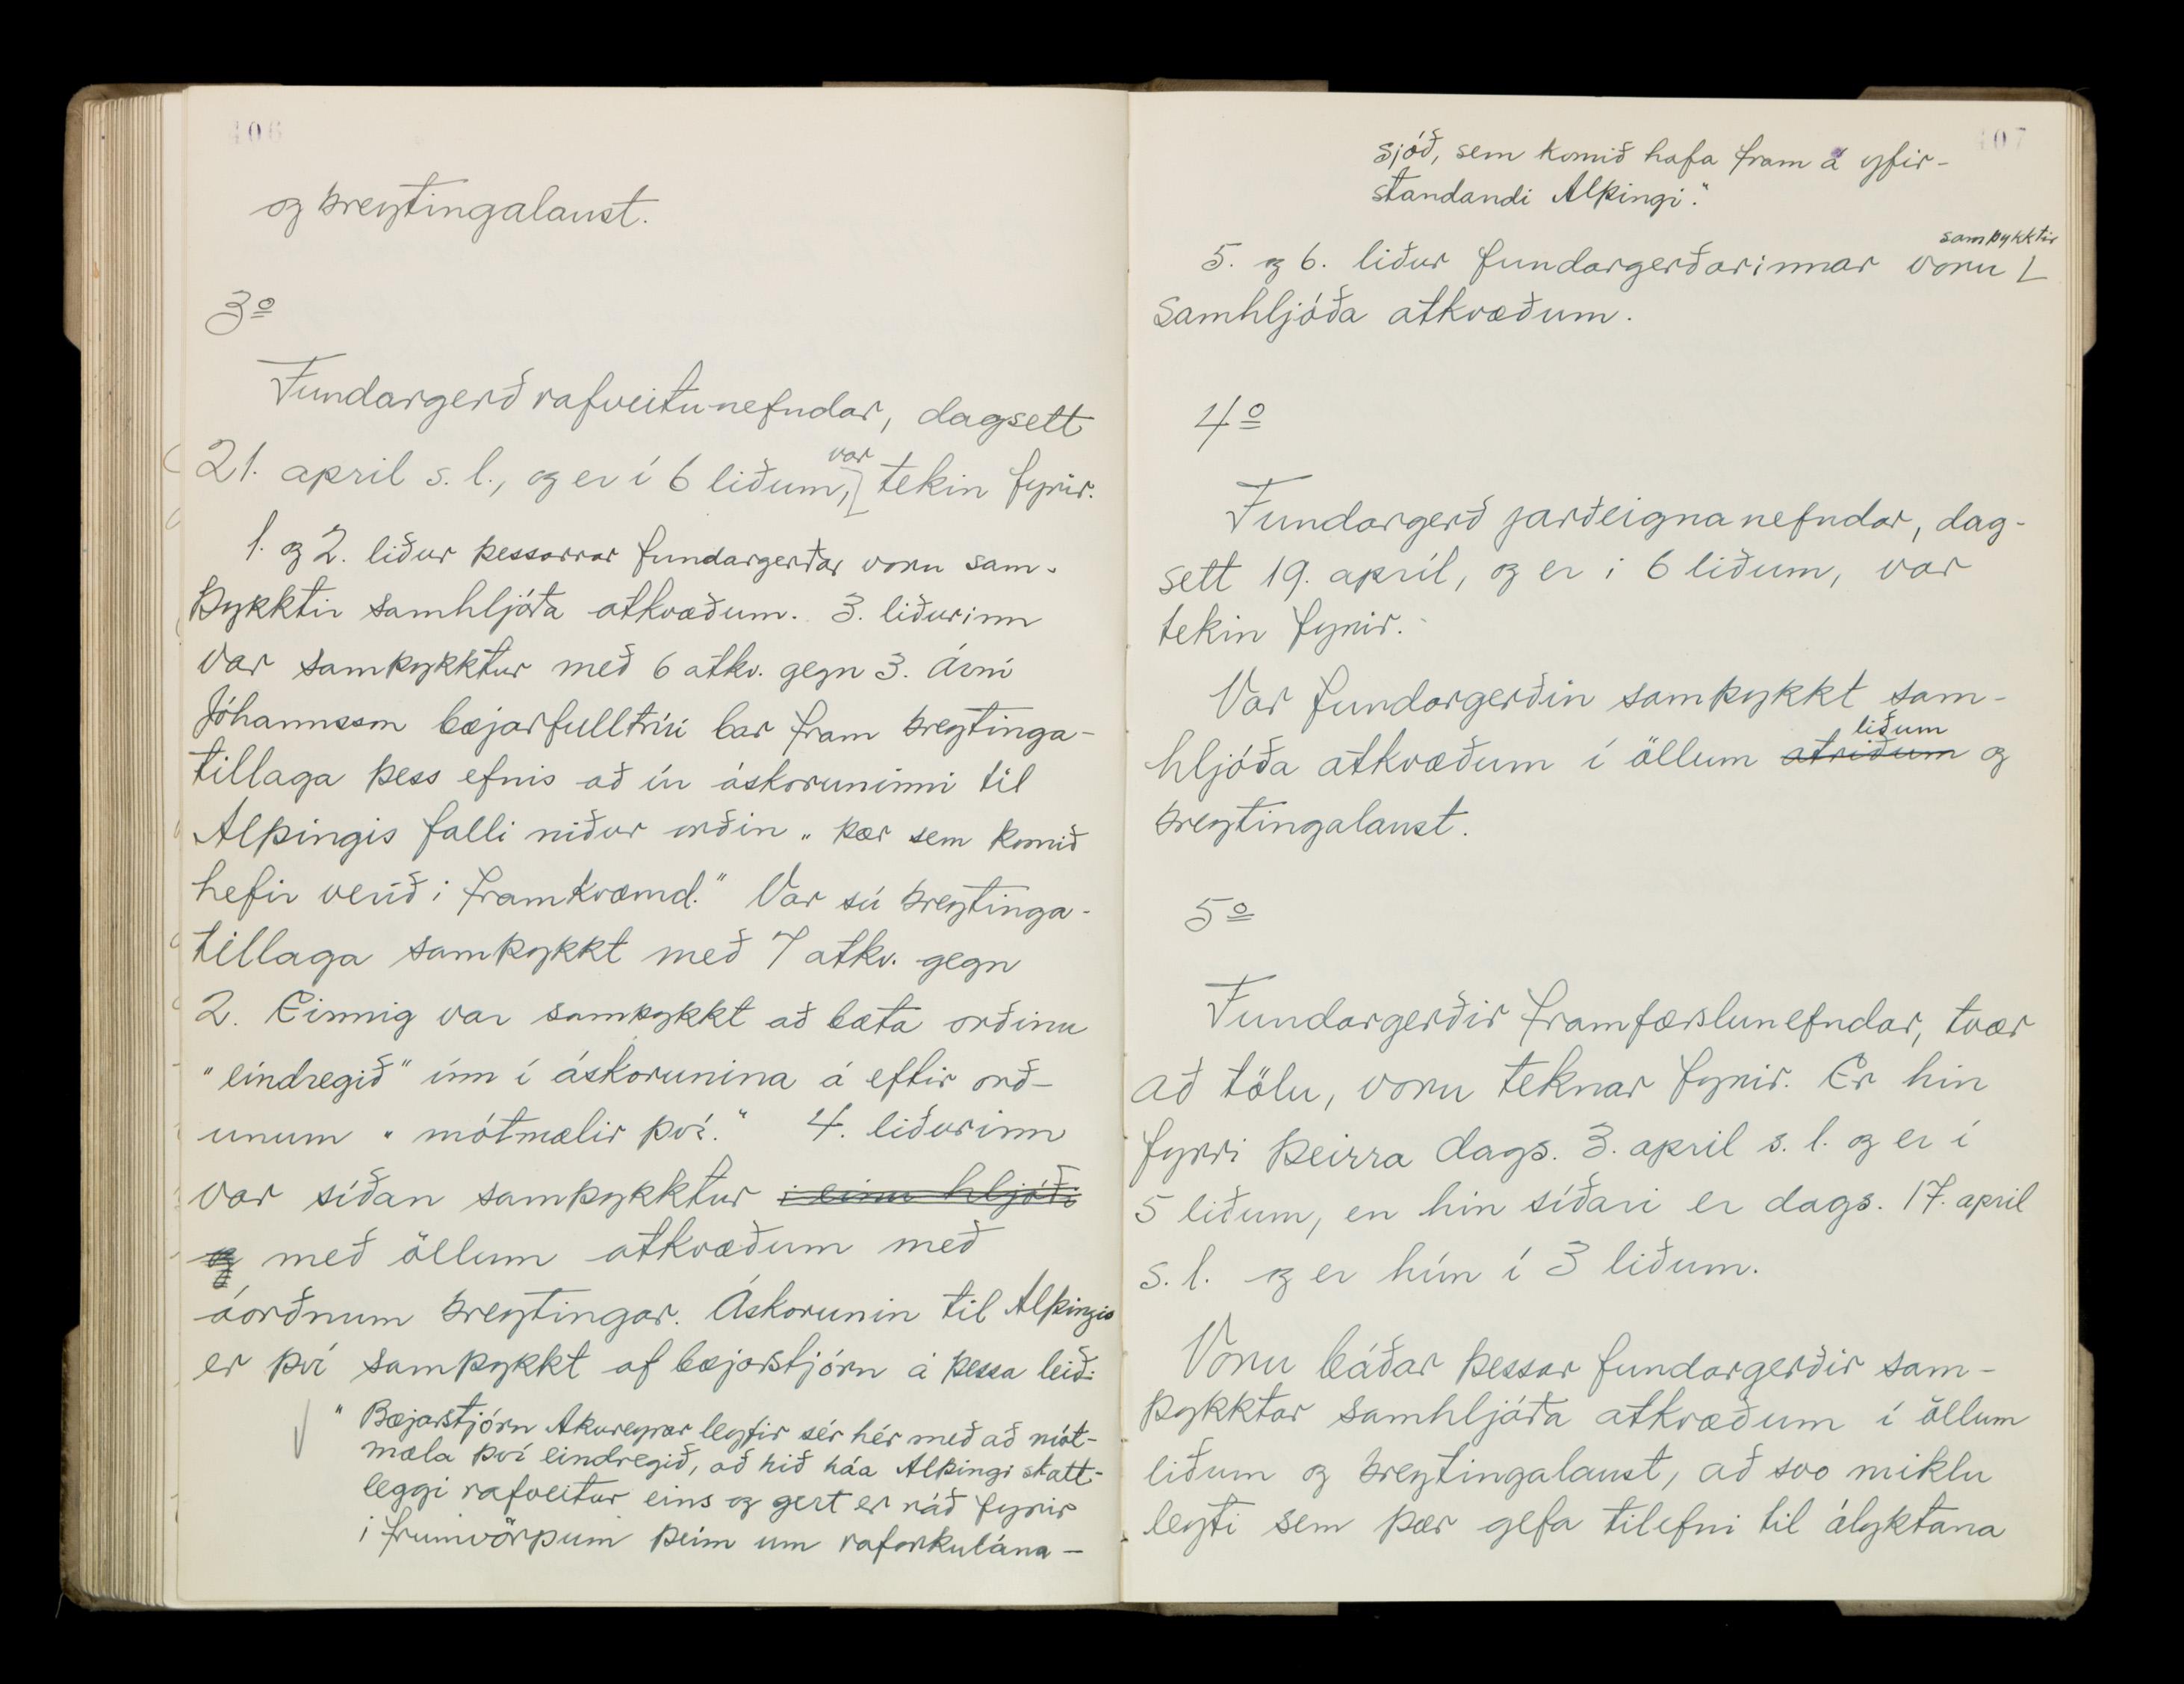 406
og breytingalaust.
3o
Fundargerð rafveitunefndar, dagsett
var
21. apríl s.l., og er í 6 liðum, tekin fyrir.
1. og 2. liður þessarrar fundargerðar voru sam-
þykktir samhljóða atkvæðum. 3. liðurinn
var samþykktur með 6 atkv. gegn 3. Árni
Jóhannsson bæjarfulltrúi bar fram breytinga-
tillaga þess efnis að úr áskoruninni til
Alþingis falli niður orðin „þær sem komið
hefir verið í framkvæmd." Var sú breytinga-
tillaga samþykkt með 7 atkv. gegn
2. Einnig var samþykkt að bæta orðinu
"eindregið" inn í áskorunina á eftir orð-
unum "mótmælir því." 4. liðurinn
var síðan samþykktur í einu hljóði
og með öllum atkvæðum með
áorðnum breytingar. Áskorunin til Alþingis
er því samþykkt af bæjarstjórn á þessa leið:
"Bæjarstjórn Akureyrar leyfir sér hér með að mót-
mæla því eindregið, að hið háa Alþingi skatt-
leggi rafveitur eins og gert er ráð fyrir
í frumvörpum þeim um raforkulána-
407
sjóð, sem komið hafa fram á yfir-
standandi Alþingi."
samþykktir
5. og 6. liður fundargerðarinnar voru
samhljóða atkvæðum.
4o
Fundargerð jarðeignanefndar, dag-
sett 19. apríl, og er í 6 liðum, var
tekin fyrir.
Var fundargerðin samþykkt sam-
liðum
hljóða atkvæðum í öllum atriðum og
breytingalaust.
5o
Fundargerðir framfærslunefndar, tvær
að tölu, voru teknar fyrir. Er hin
fyrri þeirra dags. 3. apríl s.l. og er í
5 liðum, en hin síðari er dags. 17. apríl
s.l. og er hún í 3 liðum.
Voru báðar þessar fundargerðir sam-
þykktar samhljóða atkvæðum í öllum
liðum og breytingalaust, að svo miklu
leyti sem þær gefa tilefni til ályktana